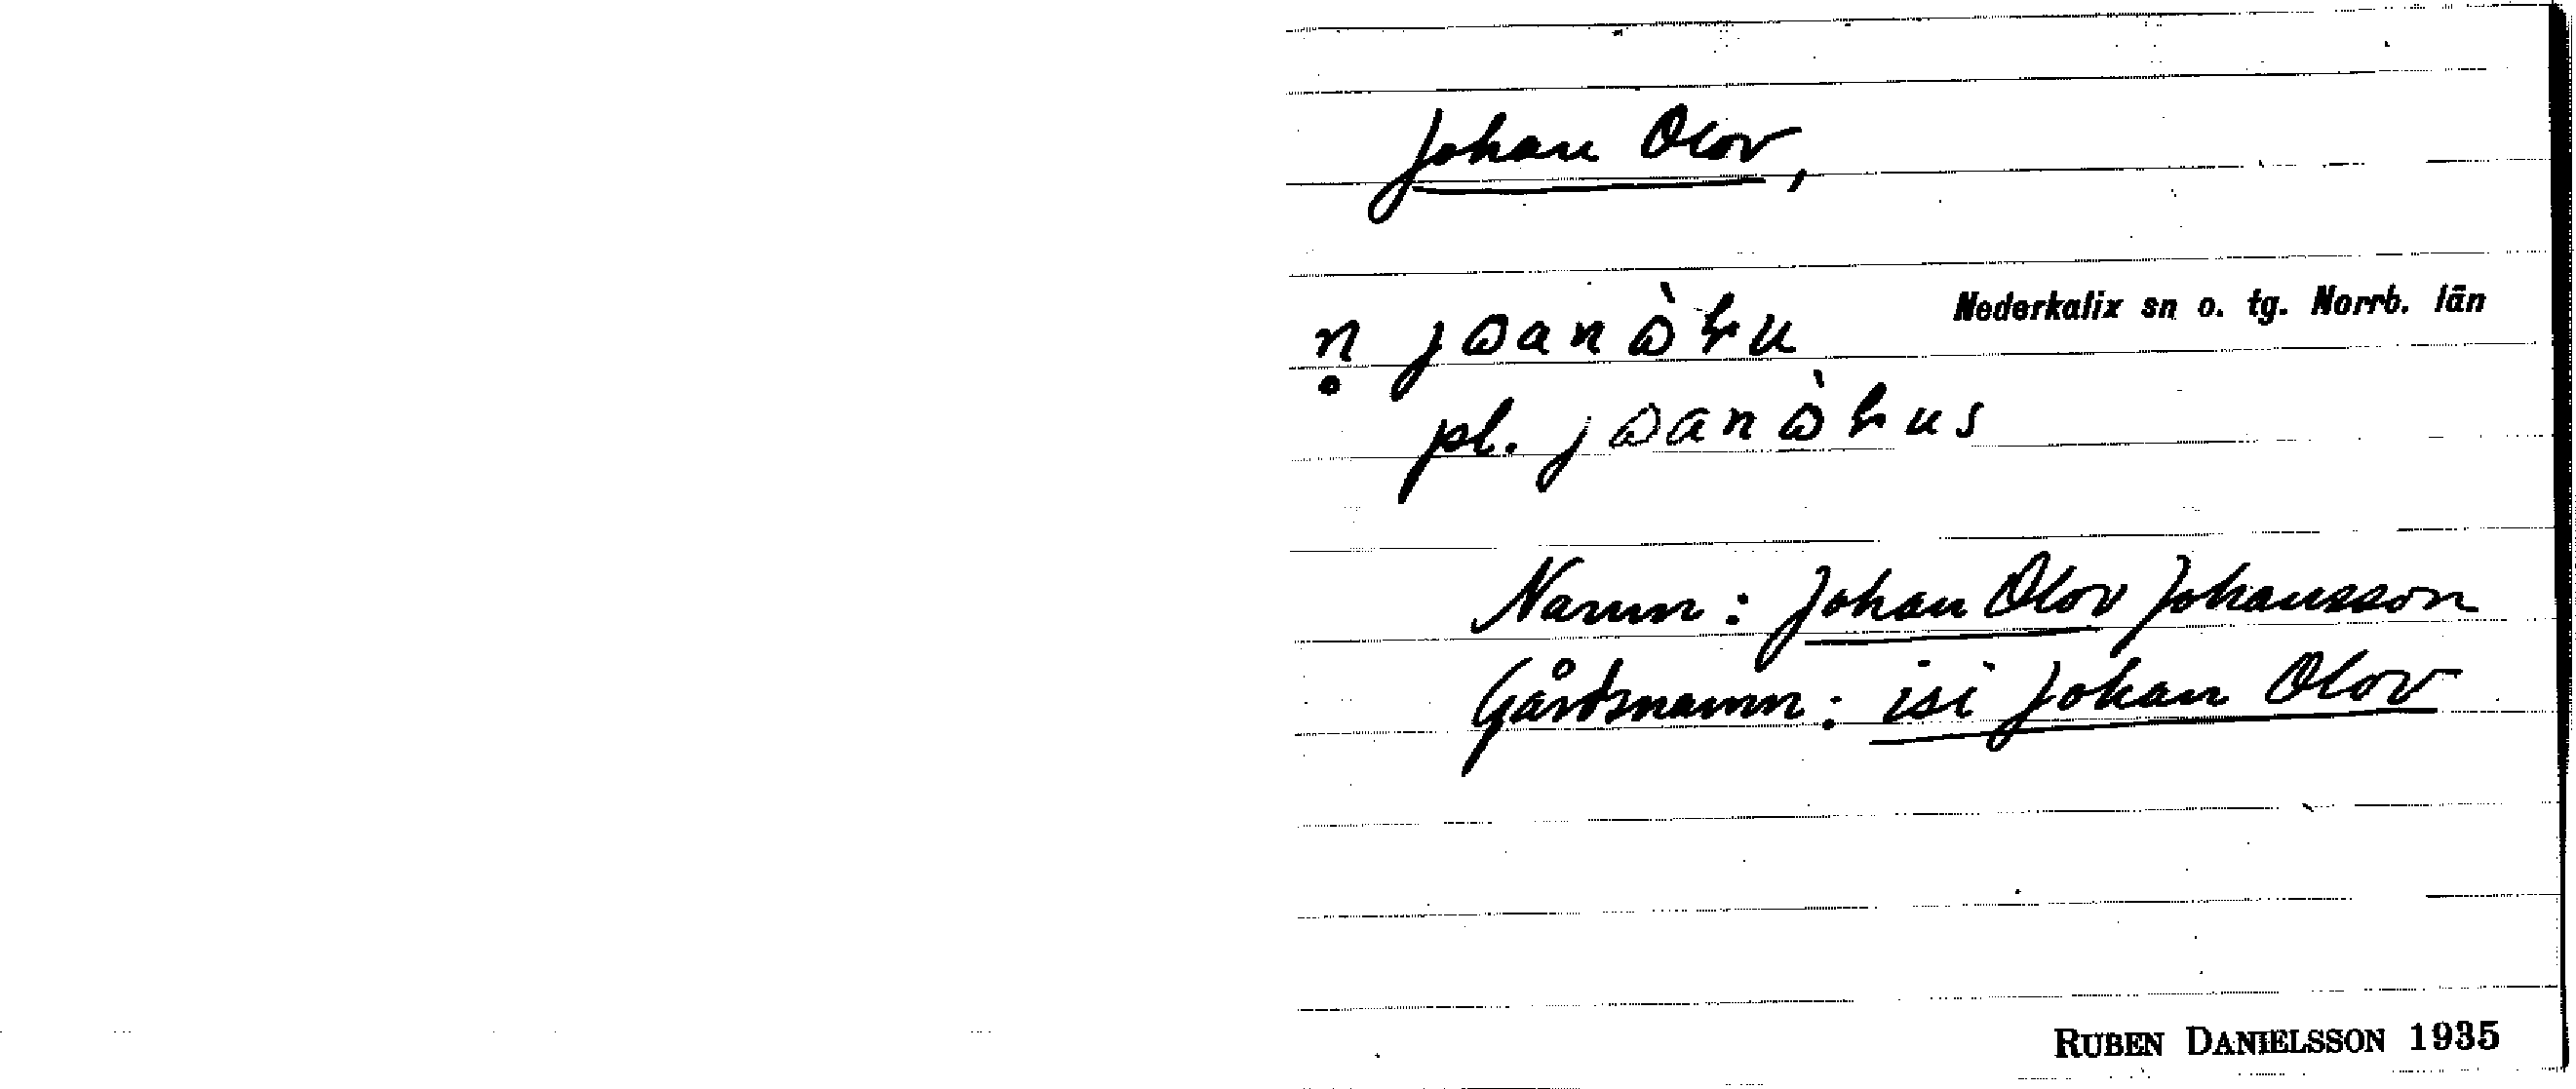 Johan Olov,
Nederkalix sn o. tg. Norrb. län
pl.
Namn: Johan Olov Johansson
Gårdsnamn: isi Johan Olov
RUBEN DANIELSSON 1935